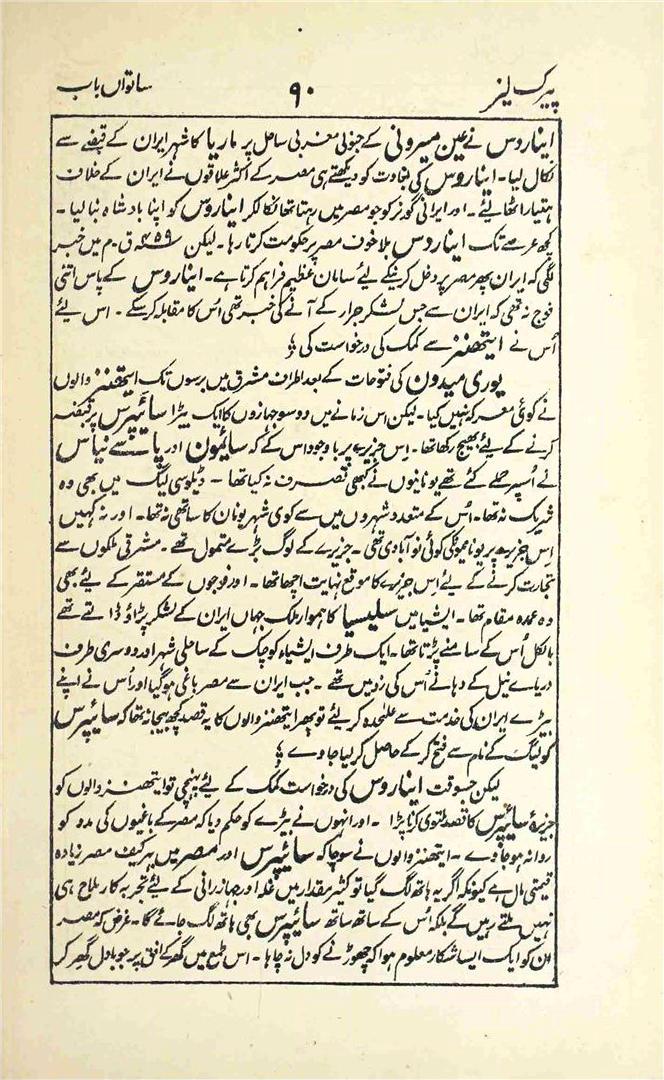 پیرک لیز
۹۰
ساتواں باب
ایناروس نے عین میرونی کے جنوبی مغربی ساحل پر ماریا کا شہر ایران کے قبضے سے
نکال لیا۔ ایناروس کی بغاوت کو دیکھتے ہی مصر کے اکثر علاقوں نے ایران کے خلاف
ہتیار اٹھا لیئے۔ اور ایرانی گورنر کو جو مصر میں رہتا تھا نکالکر ایناروس کو اپنا بادشاہ بنا لیا۔
کچھ عرصے تک ایناروس بلا خوف مصر پر حکومت کرتا رہا۔ لیکن ۴۵۹ ق۔م میں خبر
لگی کہ ایران پھر مصر پر دخل کرنیکے لیے سامان عظیم فراہم کرتا ہے۔ ایناروس کے پاس اتنی
فوج نہ تھی کہ ایران سے جس لشکر جرار کے آنے کی خبر تھی اُس کا مقابلہ کر سکے۔ اس لیے
اُس نے ایتھنز سے کمک کی درخواست کی ؛
یوری میدون کی فتوحات کے بعد اطراف مشرق میں برسوں تک ایتھنز والوں
نے کوئی معرکہ نہیں کیا۔ لیکن اس زمانے میں دو سو جہازوں کا ایک بیڑا سائپرس پر قبضہ
کرنے کے لیئے بھیج رکھا تھا۔ اِس جزیرے پر باوجود اس کے کہ سائمون اور پاسے نیاس
نے اُسپر حملے کئے تھے یونانیوں نے کبھی تصرف نہ کیا تھا۔ ڈیلوسی لیگ میں بھی وہ
شریک نہ تھا۔ اُس کے متعدد شہروں میں سے کوی شہر یونان کا ساتھی نہ تھا۔ اور نہ کہیں
اِس جزیرے پر یونانیونکی کوئی نوآبادی تھی۔ جزیرے کے لوگ بڑے متمول تھے۔ مشرقی ملکوں سے
تجارت کرنے کے لیے اِس جزیرے کا موقع نہایت اچھا تھا۔ اور فوجوں کے مستقر کے لیئے بھی
وہ عمدہ مقام تھا۔ ایشیا میں سلیسیا کا ہموار ملک جہاں ایران کے لشکر پڑاؤ ڈالتے تھے
بالکل اُس کے سامنے پڑتا تھا۔ ایک طرف ایشیاء کوچک کے ساحلی شہر اور دوسری طرف
دریاے نیل کے دہانے اُس کی زد میں تھے۔ جب ایران سے مصر باغی ہو گیا اور اُس نے اپنے
بیڑے ایران کی خدمت سے علٰحدہ کر لیئے تو پھر ایتھنز والوں کا یہ قصد کچھ بیجا نہ تھا کہ سائپرس
کو لیگ کے نام سے فتح کر کے حاصل کر لیا جاوے ؛
لیکن جسوقت ایناروس کی درخواست کمک کے لیئے پہنچی تو ایتھنز والوں کو
جزیرۂ سائپرس کا قصد ملتوی کرنا پڑا۔ اور انہوں نے بیڑے کو حکم دیا کہ مصر کے باغیوں کی مدد کو
روانہ ہو جاوے۔ ایتھنز والوں نے سوچا کہ سائپرس اور مصر میں بہر کیف مصر زیادہ
قیمتی مال ہے کیونکہ اگر یہ ہاتھ لگ گیا تو کثیر مقدار میں غلہ اور جہازرانی کے لیئے تجربہ کار ملاح ہی
نہیں ملتے رہیں گے بلکہ اُس کے ساتھ ساتھ سائپرس بھی ہاتھ لگ جائے گا۔ غرض کہ مصر
اُن کو ایک ایسا شکار معلوم ہوا کہ چھوڑنے کو دل نہ چاہا۔ اس طمع میں گھر کے افق پر جو بادل گھِر کر